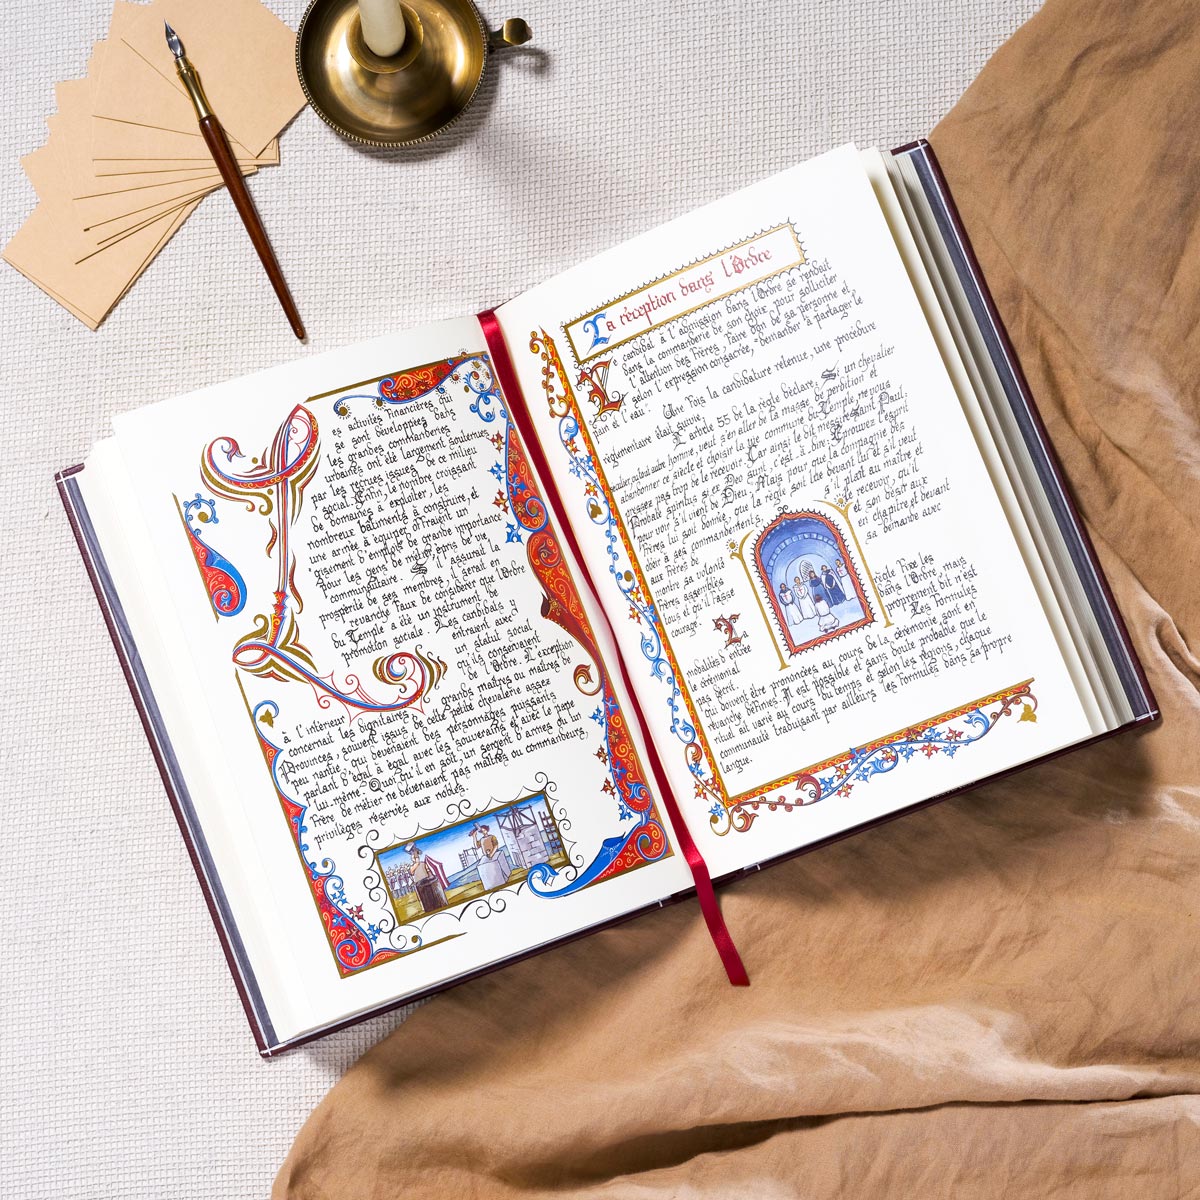 Les activités financières qui
se sont développées dans
les grandes commanderies
urbaines ont été largement soutenues
par les recrues issues de ce milieu
social. Enfin, le nombre croissant
de domaines à exploiter, les
nombreux bâtiments à construire, et
une armée à équiper offraient un
gisement d'emplois de grande importance
pour les gens de métier, épris de vie
communautaire. Si l'assurait la
prospérité de ses membres, il serait en
revanche faux de considérer que l'Ordre
du Temple a été un instrument de
promotion sociale. Les candidats y
entraient avec
un statut social
qu'ils conservaient
à l'intérieur de l'Ordre. L'exception
concernait les dignitaires grands maîtres ou maîtres de
Provinces, souvent issus de cette petite chevalerie assez
peu nantie, qui devenaient des personnages puissants
parlant d'égal à égal avec les souverains et avec le pape
lui-même. Quoi qu'il en soit, un sergent d'armes ou un
frère de métier ne devenaient pas maîtres ou commandeurs,
privilèges réservés aux nobles.
La réception dans l'Ordre
Le candidat à l'admission dans l'Ordre se rendait
dans la commanderie de son choix pour solliciter
l'attention des Frères, faire don de sa personne et
selon l'expression consacrée, "demander à partager le
pain et l'eau".
Une fois la candidature retenue, une procédure
règlementaire était suivie.
L'article 55 de la règle déclare, "Si un chevalier
séculier ou tout autre homme, veut s'en aller de la masse de perdition et
abandonner ce siècle et choisir la vie commune du Temple, ne vous
pressez pas trop de le recevoir. Car ainsi le dit messire Saint Paul,
Probate spiritus si ex Deo sunt, c'est-à-dire, Eprouvez l'esprit
pour voir s'il vient de Dieu. Mais pour que la compagnie des
Frères lui soit donnée, que la règle soit lue devant lui et s'il veut
obéir à ses commandements, s'il plaît au maître et
aux Frères de le recevoir, qu'il
montre sa volonté et son désir aux
Frères assemblés en chapitre et devant
tous et qu'il fasse sa demande avec
courage."
La règle fixe les
modalités d'entrée dans l'Ordre, mais
le cérémonial proprement dit n'est
pas décrit. Les formules
qui doivent être prononcées au cours de la cérémonie, sont en
revanche définies. Il est possible et sans doute probable que le
rituel ait varié au cours du temps et selon les régions, chaque
communauté traduisant par ailleurs les formules dans sa propre
langue.